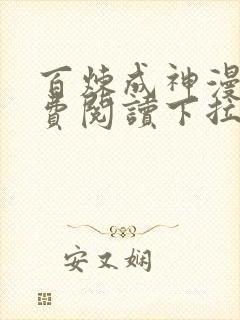 百炼成神漫
费閱讀下拉
安又娴